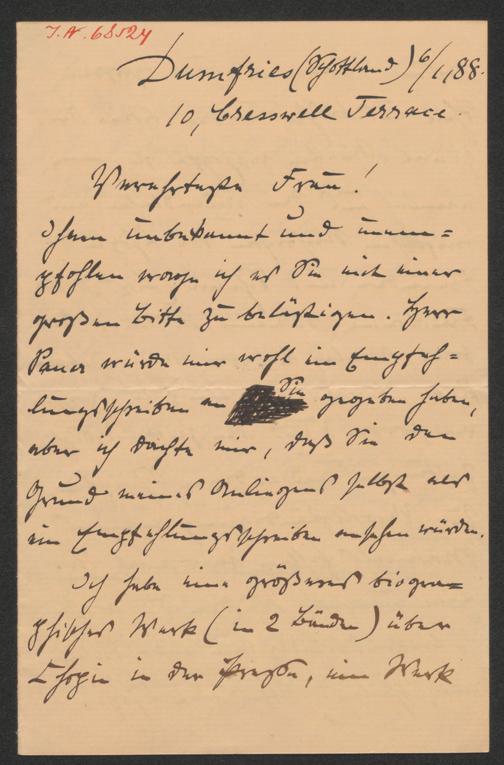 I.N. 68524
Dumfries (Schottland) 6/1, 88.
10, Cresswell Terrace.
Verehrteste Frau!
Ihnen unbekannt und unem=
pfohlen wage ich es Sie mit einer
großen Bitte zu belästigen. Herr
Pauer würde mir wohl ein Empfeh=
lungsschreiben an Sie gegeben haben,
aber ich dachte mir, daß Sie den
Grund meines Anliegens selbst als
ein Empfehlungsschreiben ansehen würden.
Ich habe eine größeres biogra=
phisches Werk (in 2 Bänden) über
Chopin in der Presse, ein Werk